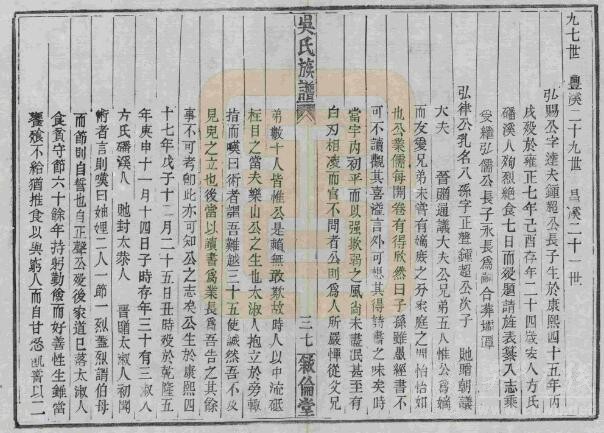 九七世 豐溪二十九世 昌溪二十一世
弘賜公字達夫鍾超公長子生於康熙四十五年丙
戌殁於雍正七年己酉存年二十四歲安人方氏
磻溪人殉烈絶食七日而殁題請旌表纂入志乘
爰繼弘儒公長子永長爲嗣合葬
弘律公乳名八孫字正聲鍾超公次子 貤贈朝議
大夫 晉贈通議大夫公兄弟五人惟公爲嫡
而友愛兄弟未嘗有嫡庶之分家庭之間怡怡如
也公業儒每開卷有得欣然曰子孫雖愚經書不
可不讀觀其喜溢言外可想其得詩書之味矣時
當宇内初平而以强欺弱之風尚未盡泯甚至有
白刃相凌而官不問者公則爲人所嚴憚從父兄
弟數十人皆惟公是賴無敢欺故時人以中流砥
柱目之當夫樂山公之生也太淑人抱立於旁輙
指而嘆曰術者謂吾難越三十五使誠然吾不及
見兒之立也後當以讀書爲業長爲吾告之其餘
事不可考卽此亦可知公之志矣公生於康熙四
十七年戊子十二月二十五日丑時殁於乾隆五
年庚申十一月十四日子時存年三十有三淑人
方氏磻溪人 貤封太恭人 晉贈太淑人初聞
術者言則嘆曰妯娌二人一節一烈蓋烈謂伯母
而節則自誓也自正聲公殁後家道已落太淑人
食貧守節六十餘年持躬勤儉而好善性生雖當
饔飱不給猶推食以與窮人而自甘忍飢嘗以二
吳氏族譜
三七 敘倫堂